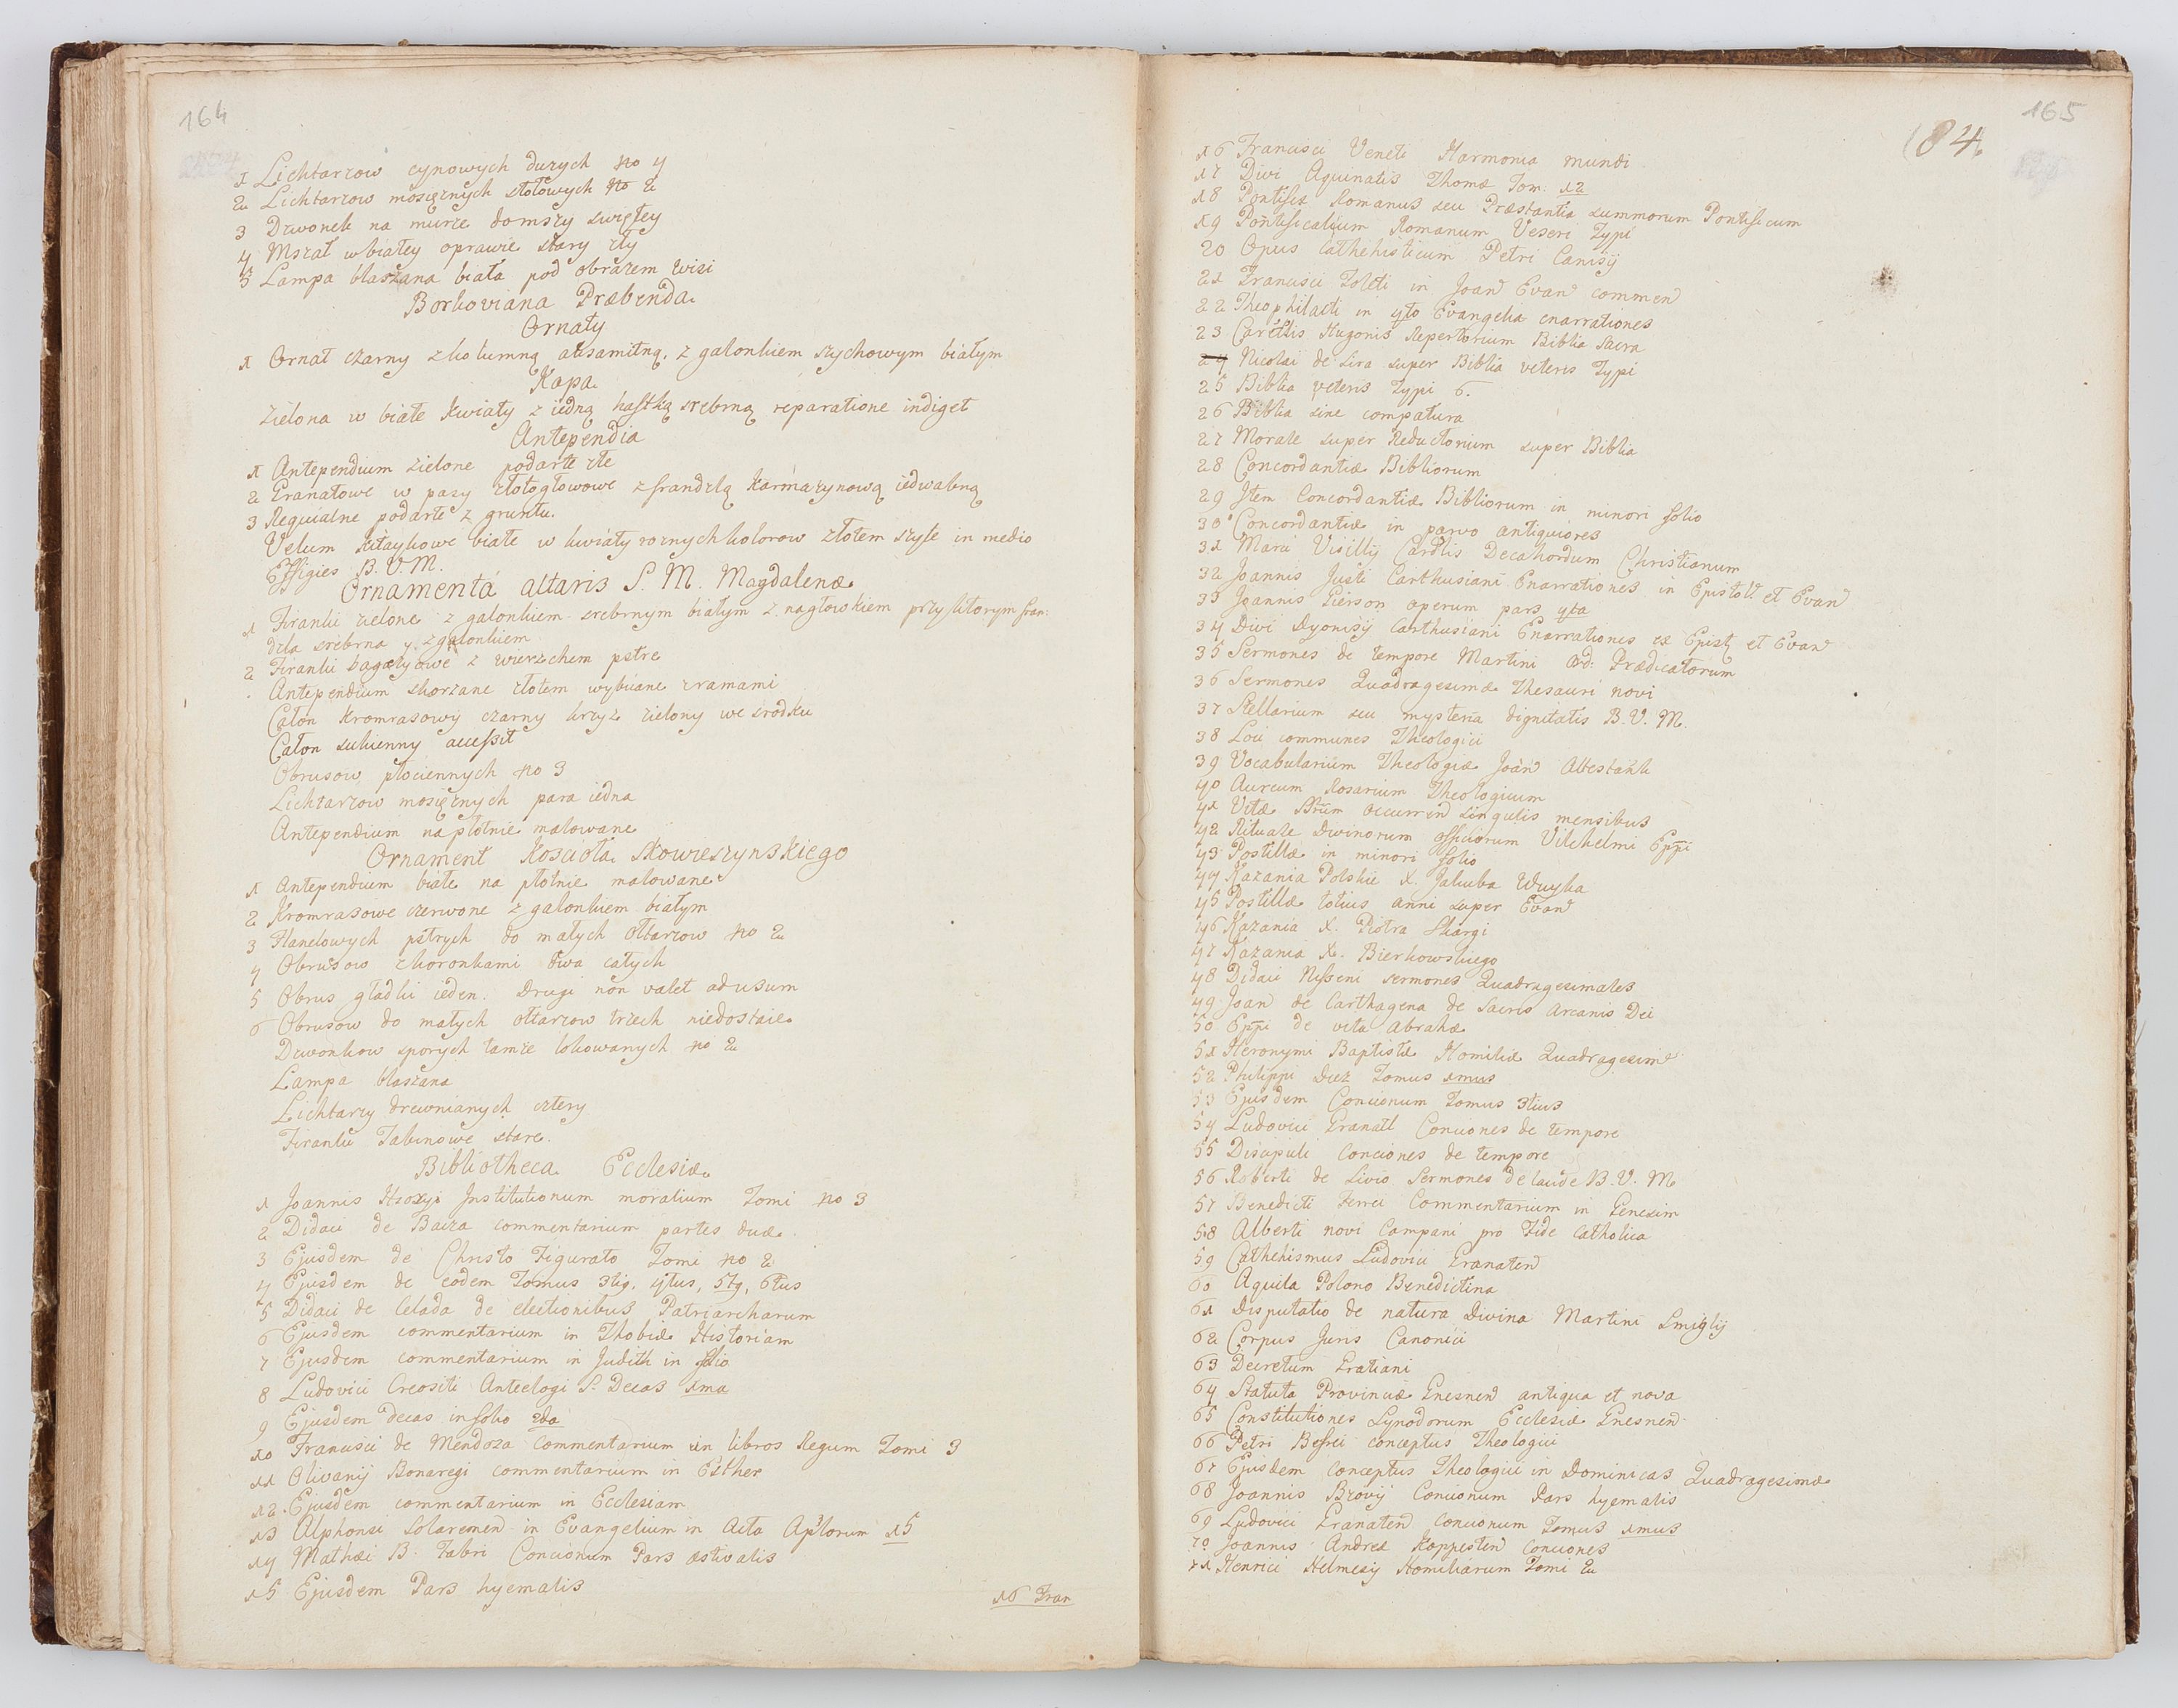 164
1 Lichtarzow cynowych duzych no 4
2 Lichtarzow mosięznych stołowych no 2
3 Dzwonek na murze do mszy swiętey
4 Mszał w białey oprawie stary zły
5 Lampa blaszana biała pod obrazem wisi
Borkoviana Præbenda
Ornaty
1 Ornat czarny z kolumną axamitną, z galonkiem szychowym białym
Kapa
zielona w białe kwiaty z iedną haftką srebrną reparatione indiget
Antependia
1 Antependium zielone podarte złe
2 Granatowe w pasy złotogłowowe z frandzlą karmazynową iedwabną
3 Requialne podarte z gruntu.
Velum kitaykowe białe w kwiaty roznych kolorow złotem szyte in medio
Effigies B. V. M.
Ornamenta altaris S. M. Magdalenæ
1 Firanki zielone z galonkiem srebrnym białym z nagłowkiem przy ktorym fran:
dzla srebrna y z galonkiem
2 Firanki bagazyowe z wierzchem pstre
Antependium skorzane złotem wybiiane z ramami
Całon kromrasowy czarny krzyz zielony we srodku
Całon sukienny accessit
Obrusow płociennych no 3
Lichtarzow mosięznych para iedna
Antependium na płotnie malowane
Ornament Koscioła Skowieszynskiego
1 Antependium białe na płotnie malowane
2 Kromrasowe czerwone z galonkiem białym
3 Flanelowych pstrych do małych Ołtarzow no 2
4 Obrusow z koronkami dwa całych
5 Obrus gładki ieden. Drugi non valet ad usum
6 Obrusow do małych ołtarzow trzech niedostaie
Dzwonkow sporych tamze lokowanych no 2
Lampa blaszana
Lichtarzy drewnianych cztery
Firanki Tabinowe stare.
Bibliotheca Ecclesiæ
1 Joannis Institutionum moralium Tomi no 3
2 Didaci de Baeza commentarium partes duæ
3 Ejusdem de Christo Figurato Tomi no 2
4 Ejusdem de eodem Tomus 3tig, 4tus, 5tg, 6tus
5 Didaci de Celada de electionibus Patriarcharum
6 Ejusdem commentarium in Thobiæ Historiam
7 Ejusdem commentarium in Judith in folio
8 Ludovici Cresoiti Antelogi S. Decas 1ma
9 Ejusdem decas in folio 2da
10 Francisci de Mendoza Commentarium in libros Regum Tomi 3
11 Olivarij Bonaregi commentarium in Esther
12 Ejusdem commentarium in Ecclesiam
13 Alphonsi in Evangelium in Acta Aptlorum 15
14 Mathæi B. Fabri Concionum Pars æstivalis
15 Ejusdem Pars hyemalis
16 Fran
165
84
16 Francisci Veneti Harmonia mundi
17 Divi Aquinatis Thomæ Tom: 12
18 Pontifex Romanus seu Præstantia summorum Pontificum
19 Pontificalium Romanum Veteri Typi
20 Opus Cathehisticum Petri Canisij
21 Francisci Toleti in Joan Evan commen
22 Theophilacti in 4to Evangelia enarrationes
23 Hugonis Repertorium Biblia Sacra
24 Nicolai de Lira super Biblia veteris Typi
25 Biblia veteris Typi 6.
26 Biblia sine compatura
27 Morale super Reductorium super Biblia
28 Concordantiæ Bibliorum
29 Item Concordantiæ Bibliorum in minori folio
30 Concordantiæ in parvo antiquiores
31 Marci Vigillij Cardlis Decahordum Christianum
32 Joannis Justi Carthusiani Enarrationes in Epistoł et Evan
33 Joannis Gierson operum pars 4ta
34 Divi Dyonisij Carthusiani Enarrationes ex Epist et Evan
35 Sermones de tempore Martini Ord: Prædicatorum
36 Sermones Quadragesimæ Thesauri novi
37 Stellarium seu mysteria dignitatis B. V. M.
38 Loci communes Theologici
39 Vocabularium Theologiæ Joan Altestahk
40 Aureum Rosarium Theologicum
41 Vitæ SSrum occurren singulis mensibus
42 Rituale Divinorum officiorum Vilchelmi Eppi
43 Postillæ in minori folio
44 Kazania Polskie X. Jakuba Wuyka
45 Postillæ totius anni super Evan
46 Kazania X. Piotra Skargi
47 Kazania X. Bierkowskiego
48 Didaci Nisseni sermones Quadragesimales
49 Joan de Carthagena de Sacris Arcanis Dei
50 Eppi de vita Abrahæ
51 Hieronymi Baptistæ Homiliæ Quadragesim
52 Philippi Diez Tomus 1mus
53 Ejusdem Concionum Tomus 3tius
54 Ludovici Granatt Conciones de tempore
55 Discipuli Conciones de tempore
56 Roberti de Licio Sermones de laude B. V. M.
57 Benedicti Ferrei Commentarium in Genesim
58 Alberti novi Campani pro Fide Catholica
59 Cathehismus Ludovici Granaten
60 Aquila Polono Benedictina
61 Disputatio de natura Divina Martini Smiglij
62 Corpus Juris Canonici
63 Decretum Gratiani
64 Statuta Provinciæ Gnesnen antiqua et nova
65 Constitutiones Synodorum Ecclesiæ Gnesnen
66 Petri Bessei conceptus Theologici
67 Ejusdem conceptus Theologici in Dominicas Quadragesimæ
68 Joannis Brovij Concionum Pars hyemalis
69 Ludovici Granaten Concionum Tomus 1mus
70 Joannis Andreæ Koppesten Conciones
71 Henrici Helmesij Homiliarum Tomi 2